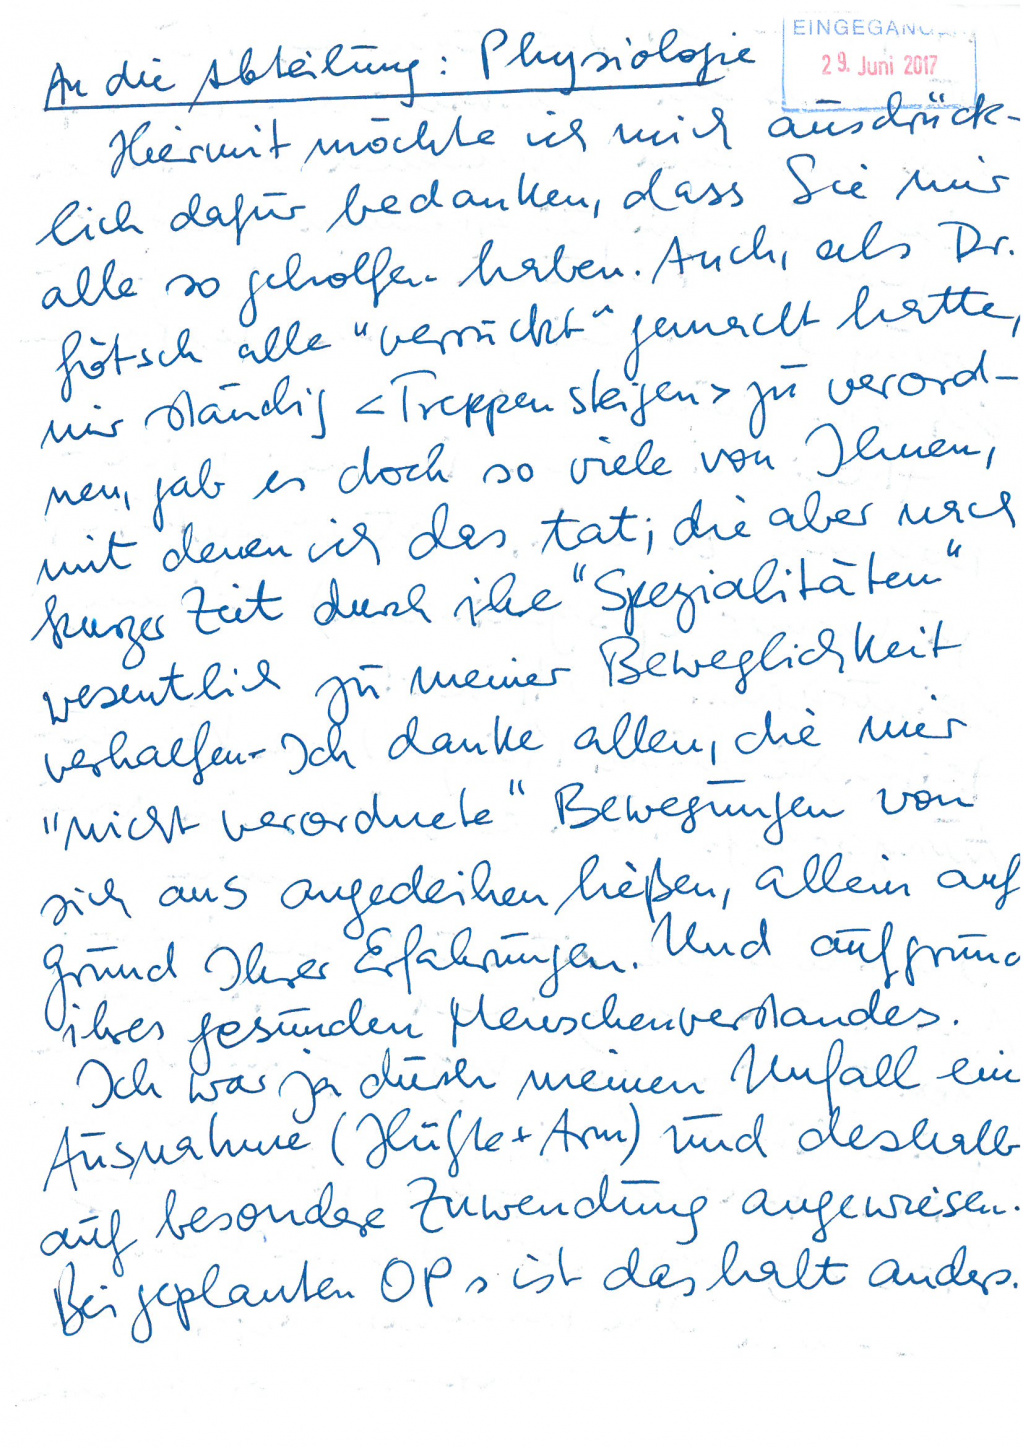 EINGEGANG
29. Juni 2017
An die Abteilung: Physiologie
Hiermit möchte ich mich ausdrück-
lich dafür bedanken, dass Sie mir
alle so geholfen haben. Auch, als Dr.
alle "verrückt" gemacht hatte,
mir ständig <Treppensteigen> zu verord-
nen, gab es doch so viele von Ihnen,
mit denen ich das tat; die aber nach
kurzer Zeit durch ihre "Spezialitäten"
wesentlich zu meiner Beweglichkeit
verhalfen. Ich danke allen, die mir
"nicht verordnete" Bewegungen von
sich aus angedeihen ließen, allein auf
Grund Ihrer Erfahrungen. Und aufgrund
ihres gesunden Menschenverstandes.
Ich war ja durch meinen Unfall ein
Ausnahme (Hüfte + Arm) und deshalb
auf besondere Zuwendung angewiesen.
Bei geplanten OPs ist das halt anders.